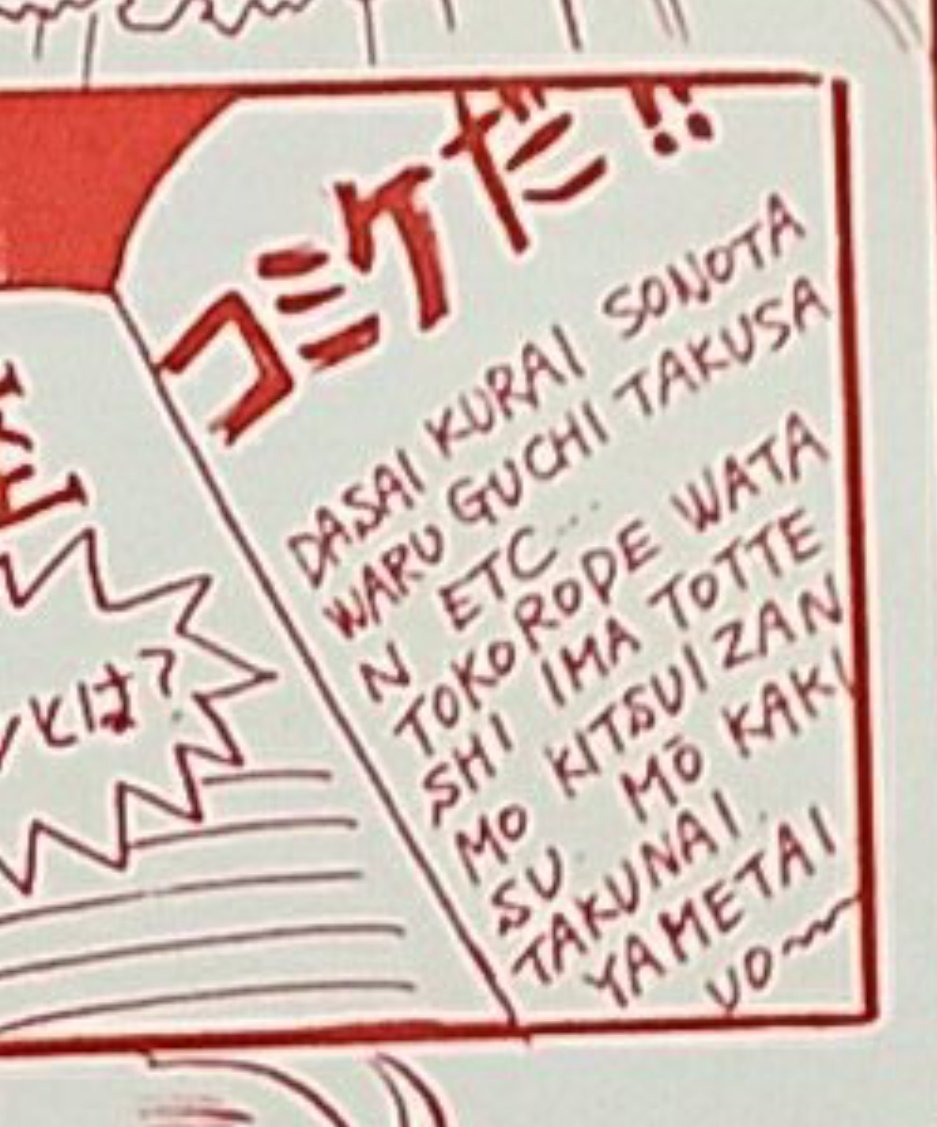 コミケだ!!
DASAI KURAI SONOTA
WARU GUCHI TAKUSA
N ETC...
TOKORODE WATA
SHI IMA TOTTE
MO KITSUI ZAN
SU. MŌ KAKI
TAKUNAI.
YAMETAI
YO〜
とは?